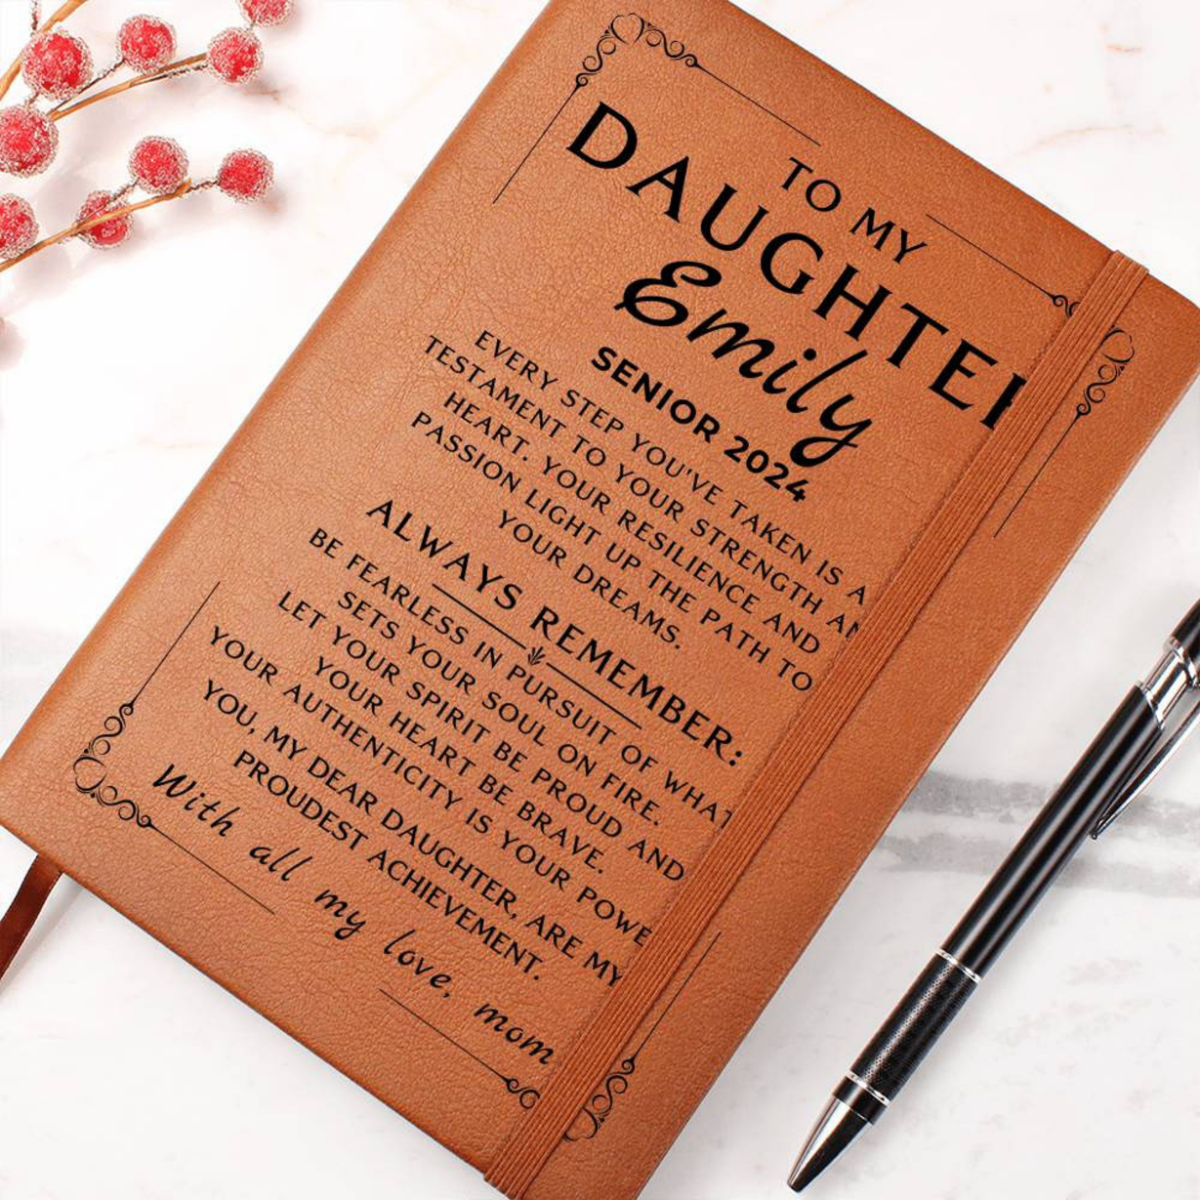 TO MY
DAUGHTE
Emily
SENIOR 2024
EVERY STEP YOU'VE TAKEN IS A
TESTAMENT TO YOUR STRENGTH AN
HEART. YOUR RESILIENCE AND
PASSION LIGHT UP THE PATH TO
YOUR DREAMS.
ALWAYS REMEMBER:
BE FEARLESS IN PURSUIT OF WHAT
SETS YOUR SOUL ON FIRE.
LET YOUR SPIRIT BE PROUD AND
YOUR HEART BE BRAVE.
YOUR AUTHENTICITY IS YOUR POWE
YOU, MY DEAR DAUGHTER, ARE MY
PROUDEST ACHIEVEMENT.
With all my love, mom